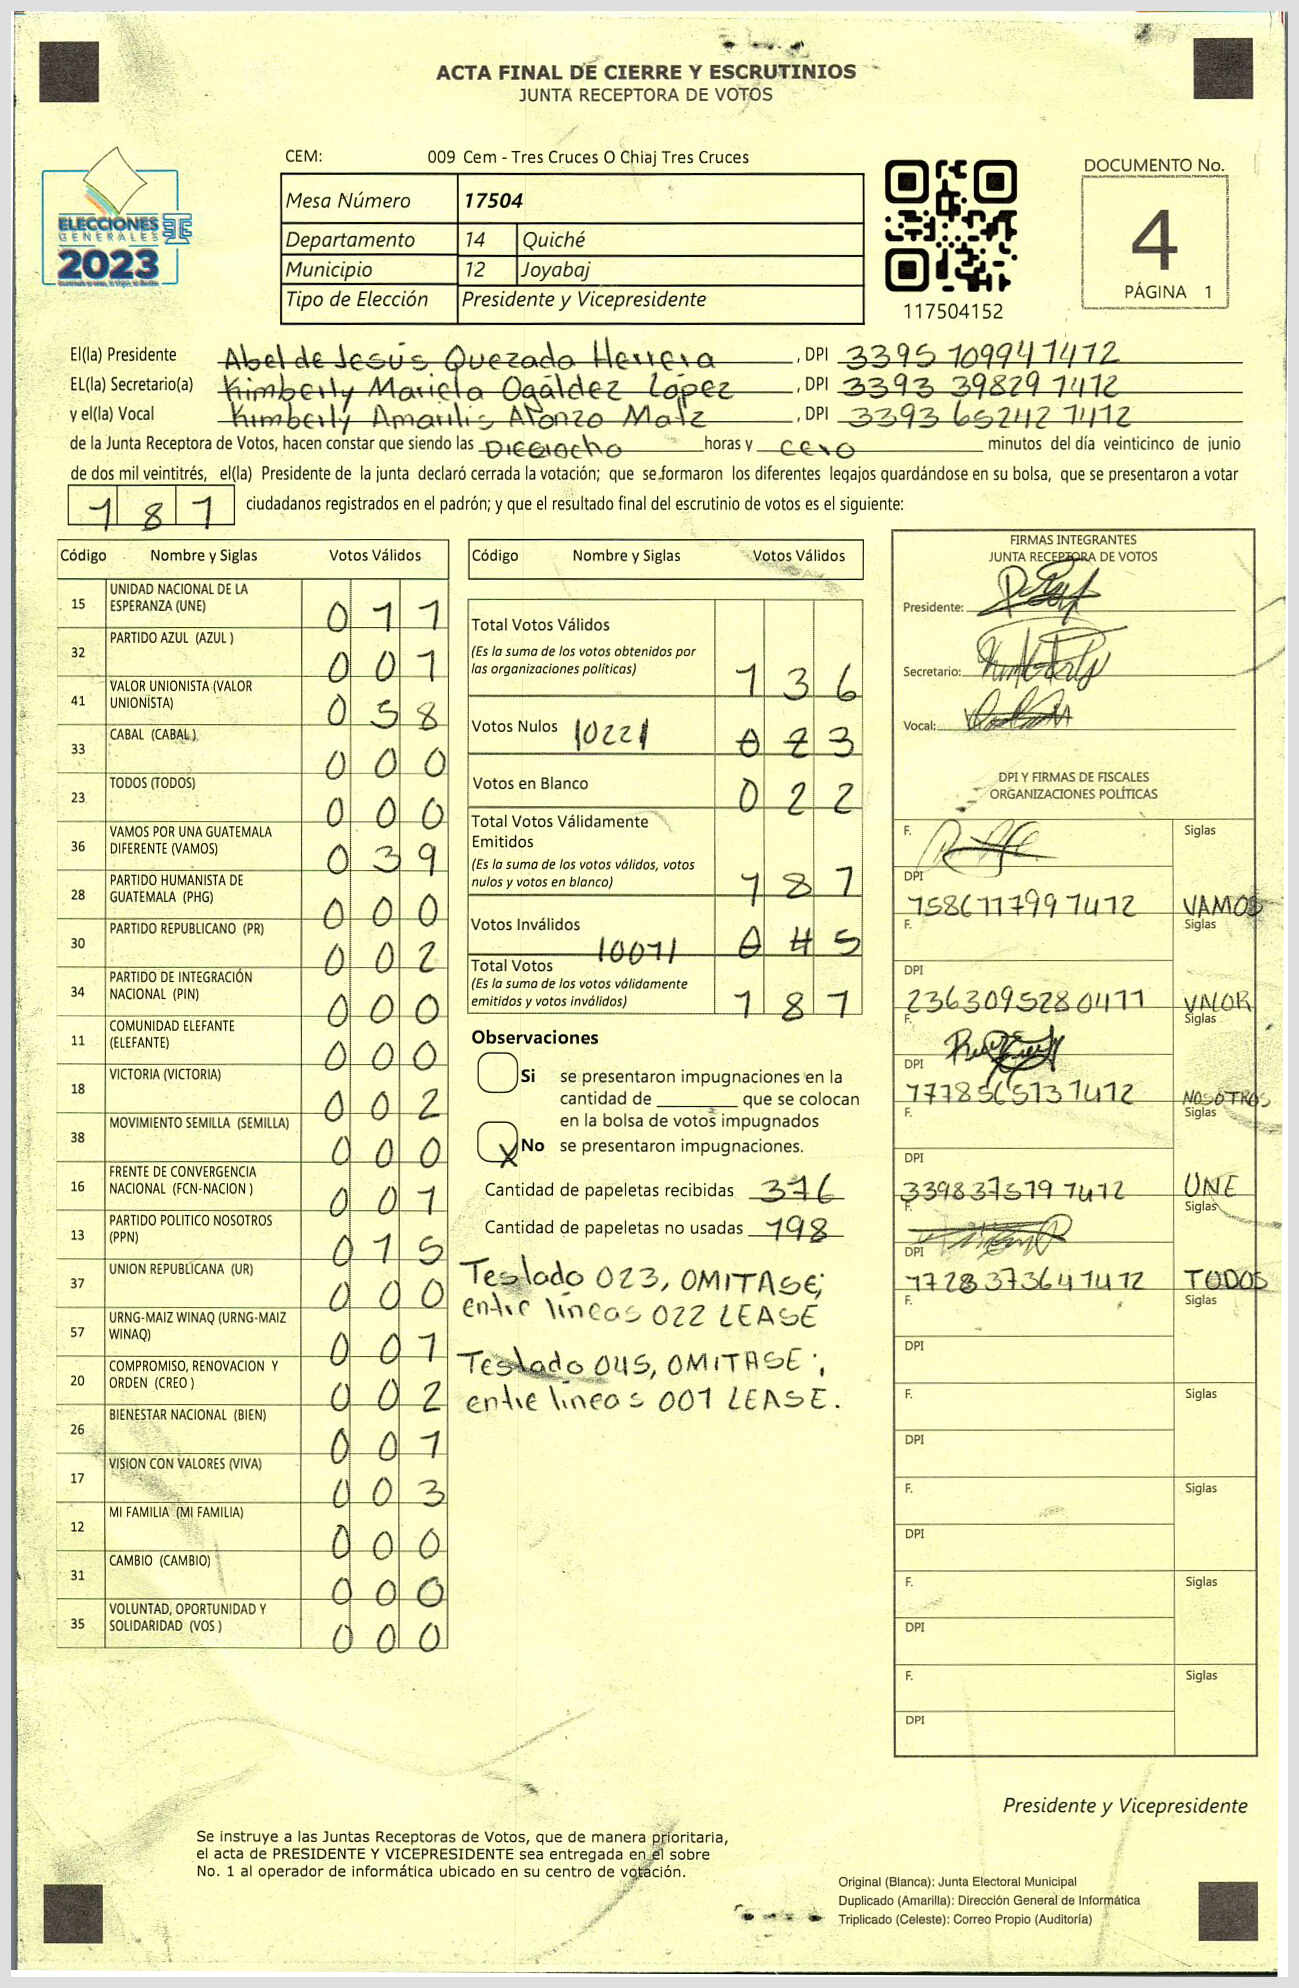 ACTA FINAL DE CIERRE Y ESCRUTINIOS
JUNTA RECEPTORA DE VOTOS
ELECCIONES
GENERALES
2023
CEM: 009 Cem - Tres Cruces O Chiaj Tres Cruces
Mesa Número 17504
Departamento 14 Quiché
Municipio 12 Joyabaj
Tipo de Elección Presidente y Vicepresidente
117504152
DOCUMENTO No.
4
PÁGINA 1
El(la) Presidente Abel de Jesús Quezada Herrera, DPI 3395 10994 1412
EL(la) Secretario(a) Kimberly Mariela Ogáldez López, DPI 3393 39829 1412
y el(la) Vocal Kimberly Amarilis Alonzo Matz, DPI 3393 65242 1412
de la Junta Receptora de Votos, hacen constar que siendo las Dieciocho horas y cero minutos del día veinticinco de junio
de dos mil veintitrés, el(la) Presidente de la junta declaró cerrada la votación; que se formaron los diferentes legajos guardándose en su bolsa, que se presentaron a votar
181 ciudadanos registrados en el padrón; y que el resultado final del escrutinio de votos es el siguiente:
Código Nombre y Siglas Votos Válidos
15 UNIDAD NACIONAL DE LA ESPERANZA (UNE) 011
32 PARTIDO AZUL (AZUL ) 001
41 VALOR UNIONISTA (VALOR UNIONISTA) 058
33 CABAL (CABAL ) 000
23 TODOS (TODOS) 000
36 VAMOS POR UNA GUATEMALA DIFERENTE (VAMOS) 039
28 PARTIDO HUMANISTA DE GUATEMALA (PHG) 000
30 PARTIDO REPUBLICANO (PR) 002
34 PARTIDO DE INTEGRACIÓN NACIONAL (PIN) 000
11 COMUNIDAD ELEFANTE (ELEFANTE) 000
18 VICTORIA (VICTORIA) 002
38 MOVIMIENTO SEMILLA (SEMILLA) 000
16 FRENTE DE CONVERGENCIA NACIONAL (FCN-NACION ) 001
13 PARTIDO POLITICO NOSOTROS (PPN) 015
37 UNION REPUBLICANA (UR) 000
57 URNG-MAIZ WINAQ (URNG-MAIZ WINAQ) 001
20 COMPROMISO, RENOVACION Y ORDEN (CREO ) 002
26 BIENESTAR NACIONAL (BIEN) 001
17 VISION CON VALORES (VIVA) 003
12 MI FAMILIA (MI FAMILIA) 000
31 CAMBIO (CAMBIO) 000
35 VOLUNTAD, OPORTUNIDAD Y SOLIDARIDAD (VOS ) 000
Código Nombre y Siglas Votos Válidos
Total Votos Válidos
(Es la suma de los votos obtenidos por
las organizaciones políticas) 136
Votos Nulos |022| 023
Votos en Blanco 022
Total Votos Válidamente
Emitidos
(Es la suma de los votos válidos, votos
nulos y votos en blanco) 181
Votos Inválidos |001| 045
Total Votos
(Es la suma de los votos válidamente
emitidos y votos inválidos) 181
Observaciones
Si se presentaron impugnaciones en la
cantidad de ________ que se colocan
en la bolsa de votos impugnados
X No se presentaron impugnaciones.
Cantidad de papeletas recibidas 376
Cantidad de papeletas no usadas 198
Testado 023, OMITASE;
entre líneas 022 LEASE
Testado 045, OMITASE;
entre líneas 001 LEASE.
FIRMAS INTEGRANTES
JUNTA RECEPTORA DE VOTOS
Presidente:
Secretario:
Vocal:
DPI Y FIRMAS DE FISCALES
ORGANIZACIONES POLÍTICAS
F. Siglas
DPI 1586117991412 VAMOS
F. Siglas
DPI 2363095280411 VALOR
F. Siglas
DPI 1778565131412 NOSOTROS
F. Siglas
DPI 3398375191412 UNE
F. Siglas
DPI 1728373641412 TODOS
F. Siglas
DPI
F. Siglas
DPI
F. Siglas
DPI
F. Siglas
DPI
F. Siglas
DPI
Presidente y Vicepresidente
Se instruye a las Juntas Receptoras de Votos, que de manera prioritaria,
el acta de PRESIDENTE Y VICEPRESIDENTE sea entregada en el sobre
No. 1 al operador de informática ubicado en su centro de votación.
Original (Blanca): Junta Electoral Municipal
Duplicado (Amarilla): Dirección General de Informática
Triplicado (Celeste): Correo Propio (Auditoría)